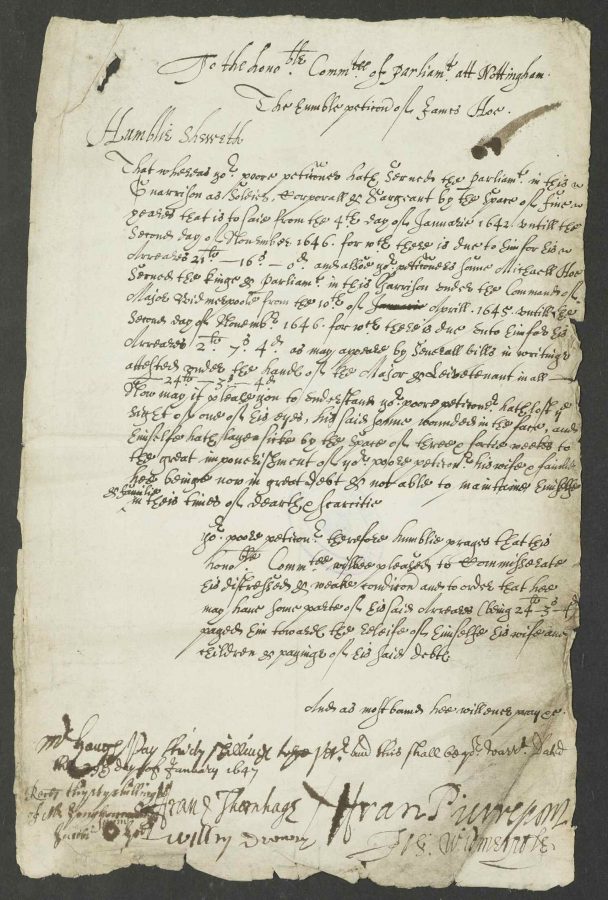 To the hono:ble Comm:tee of Parliam:t att Nottingham
The humble peticon of James Hoe.
Humblie Sheweth
That whereas yo:r poore peticoner hath served the Parliam:t in this
Guarrison as Soldier, Corporall & Sargeant by the space of five
yeares that is to saie from the 4th day of Januarie 1642 untill the
Second day of November 1646. for w:ch there is due to him for his
Arreares 21li — 16s — 0d and allsoe yo:r peticoners sonne Michaell Hoe
Served the kinge & Parliam:t in this Garrison under the Command of
Major Widmerpoole from the 10th of Januarie Aprill. 1645. untill the
Second day of Novemb:r 1646. for w:ch there is due unto him for his
Arreares 2li 7s 4d as may appeare by severall bills in writinge
attested under the hands of the Major & Leivetenant in all
24li — 3s — 4d
Now may it please you to understand yo:r poore peticon:r hath lost ye
sight of one of his eyes, his said sonne wounded in the face, and
himselfe hath layen sicke by the space of three & fortie weekes to
the great impoverishment of yo:r poore peticon:r his wife & familie
hee beinge now in great debt & not able to maintaine himselfe
& familie in theis times of dearth & scarcitie
Yo:r poore peticon:r therefore humblie prayes that this
hono:ble Comm:tee wilbee pleased to Commisserate
his distressed & weake condicon and to order that hee
may have some parte of his said Arreares (being 24li 3s 4d)
payed him towards the releife of himselfe his wife and
children & payinge of his said debts
And as most bound hee will ever pray &c.
Mr Pay thirty shillings to ye pet:r and this shall be yo:r warr:t Dated
the day of January 1647
Rec:d thirty shillings
of Mr
Fran Thornhagh
Fran Pierrepont
Will
Jos: Widmerpole